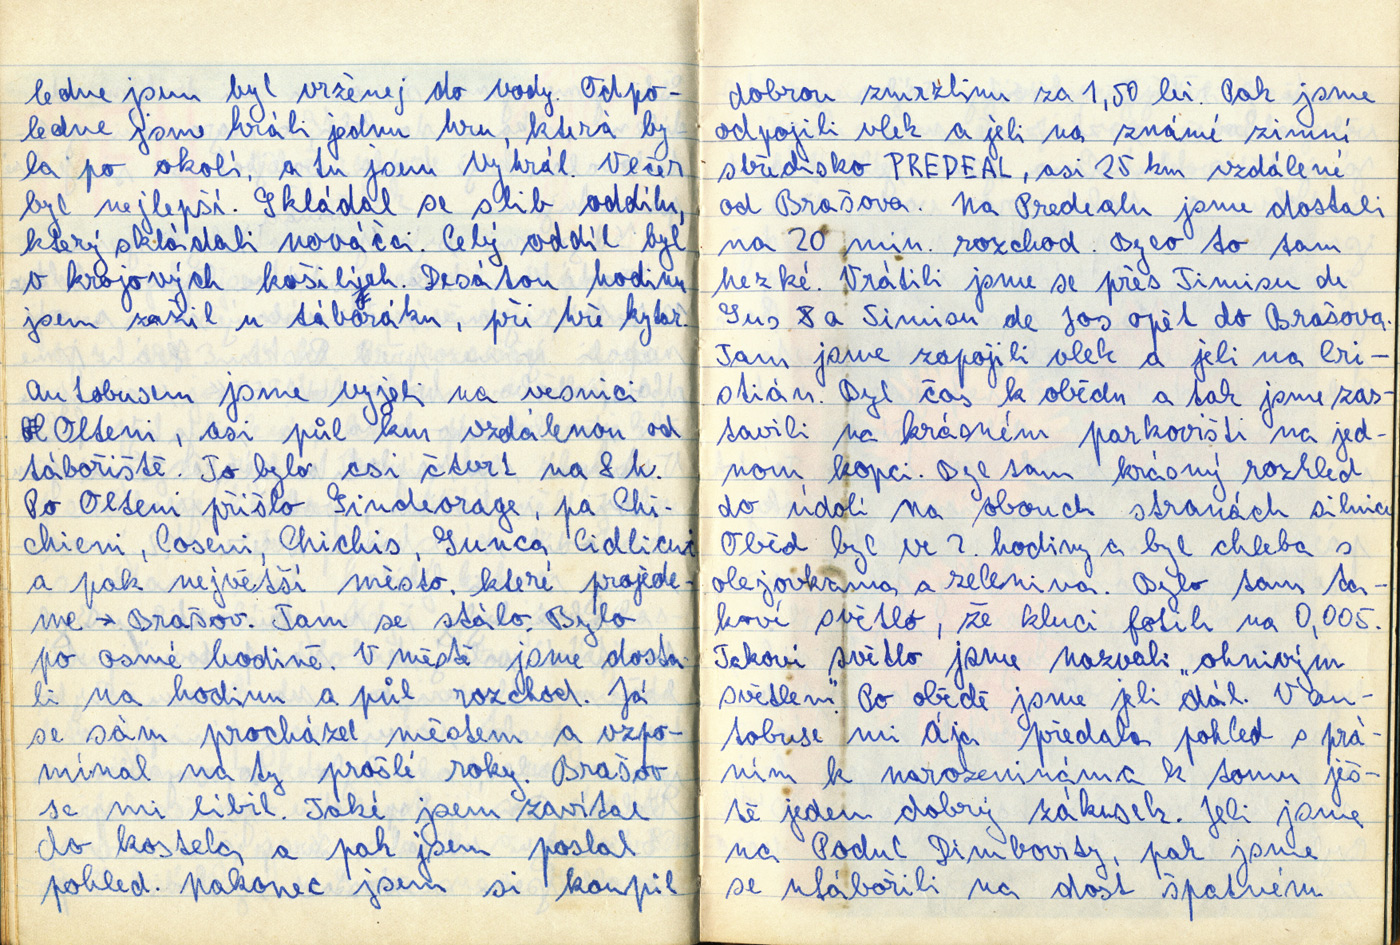 ledne jsem byl vrženej do vody. Odpo-
ledne jsme hráli jednu hru která by-
la po okolí, a tu jsem vyhrál. Večer
byl nejlepší. Skládal se slib oddílu,
který skládali nováčci. Celý oddíl byl
v krojových košilích. Desátou hodinu
jsem zažil u táboráku, při hře kytar.
Autobusem jsme vyjeli na vesnici
Olteni, asi půl km vzdálenou od
tábořiště. To bylo asi čtvrt na 8 h.
Po Olteni přišlo Gindeorage, pa Chi-
chieni, Coseni, Chichis, Lunca
a pak největší město, které projede-
me → Brašov. Tam se stálo. Bylo
po osmé hodině. V městě jsme dosta-
li na hodinu a půl rozchod. Já
se sám procházel městem a vzpo-
mínal na ty prošlé roky. Brašov
se mi líbil. Také jsem zavítal
do kostela, a pak jsem poslal
pohled. Nakonec jsem si koupil
dobrou zmržlinu za 1,50 lei. Pak jsme
odpojili vlek a jeli na známé zimní
středisko PREDEAL, asi 25 km vzdálené
od Brašova. Na Predealu jsme dostali
na 20 min. rozchod. Bylo to tam
hezké. Vrátili jsme se přes Timisu de
Sus a Timisu de Jos opět do Brašova.
Tam jsme zapojili vlek a jeli na Cri-
stián. Byl čas k obědu a tak jsme zas-
tavili na krásném parkovišti na jed-
nom kopci. Byl tam krásný rozhled
do údolí na obouch stranách silnice
Oběd byl ve 2. hodiny a byl chleba s
olejovkama a zelenina. Bylo tam ta-
kové světlo, že kluci fotili na 0,005.
Takové světlo jsme nazvali "ohnivým
světlem". Po obědě jsme jeli dál. V au-
tobuse mi Ája předala pohled s přá-
ním k narozeninám a k tomu ješ-
tě jeden dobrý zákusek. Jeli jsme
na Podul Dimbovity, pak jsme
se utábořili na dost špatném